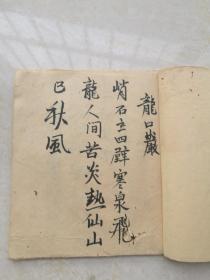 龍口巖
峭石立四壁寒泉飛
龍人间苦炎熱仙山
已秋風